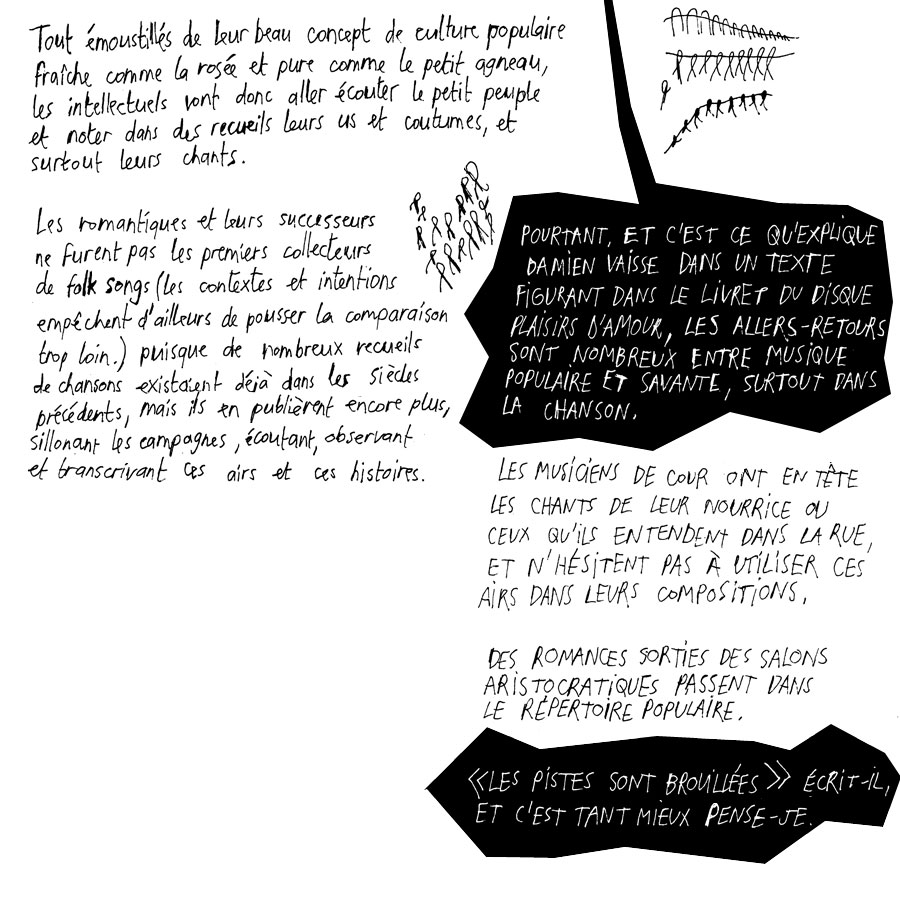 Tout émoustillés de leur beau concept de culture populaire
fraîche comme la rosée et pure comme le petit agneau,
les intellectuels vont donc aller écouter le petit peuple
et noter dans des recueils leurs us et coutumes, et
surtout leurs chants.
Les romantiques et leurs successeurs
ne furent pas les premiers collecteurs
de folk songs (les contextes et intentions
empêchent d'ailleurs de pousser la comparaison
trop loin.) puisque de nombreux recueils
de chansons existaient déjà dans les siècles
précédents, mais ils en publièrent encore plus,
sillonant les campagnes, écoutant, observant
et transcrivant ces airs et ces histoires.
POURTANT, ET C'EST CE QU'EXPLIQUE
DAMIEN VAÏSSE DANS UN TEXTE
FIGURANT DANS LE LIVRET DU DISQUE
PLAISIRS D'AMOUR, LES ALLERS-RETOURS
SONT NOMBREUX ENTRE MUSIQUE
POPULAIRE ET SAVANTE, SURTOUT DANS
LA CHANSON.
LES MUSICIENS DE COUR ONT EN TÊTE
LES CHANTS DE LEUR NOURRICE OU
CEUX QU'ILS ENTENDENT DANS LA RUE,
ET N'HÉSITENT PAS À UTILISER CES
AIRS DANS LEURS COMPOSITIONS.
DES ROMANCES SORTIES DES SALONS
ARISTOCRATIQUES PASSENT DANS
LE RÉPERTOIRE POPULAIRE.
«LES PISTES SONT BROUILLÉES» ÉCRIT-IL,
ET C'EST TANT MIEUX PENSE-JE.